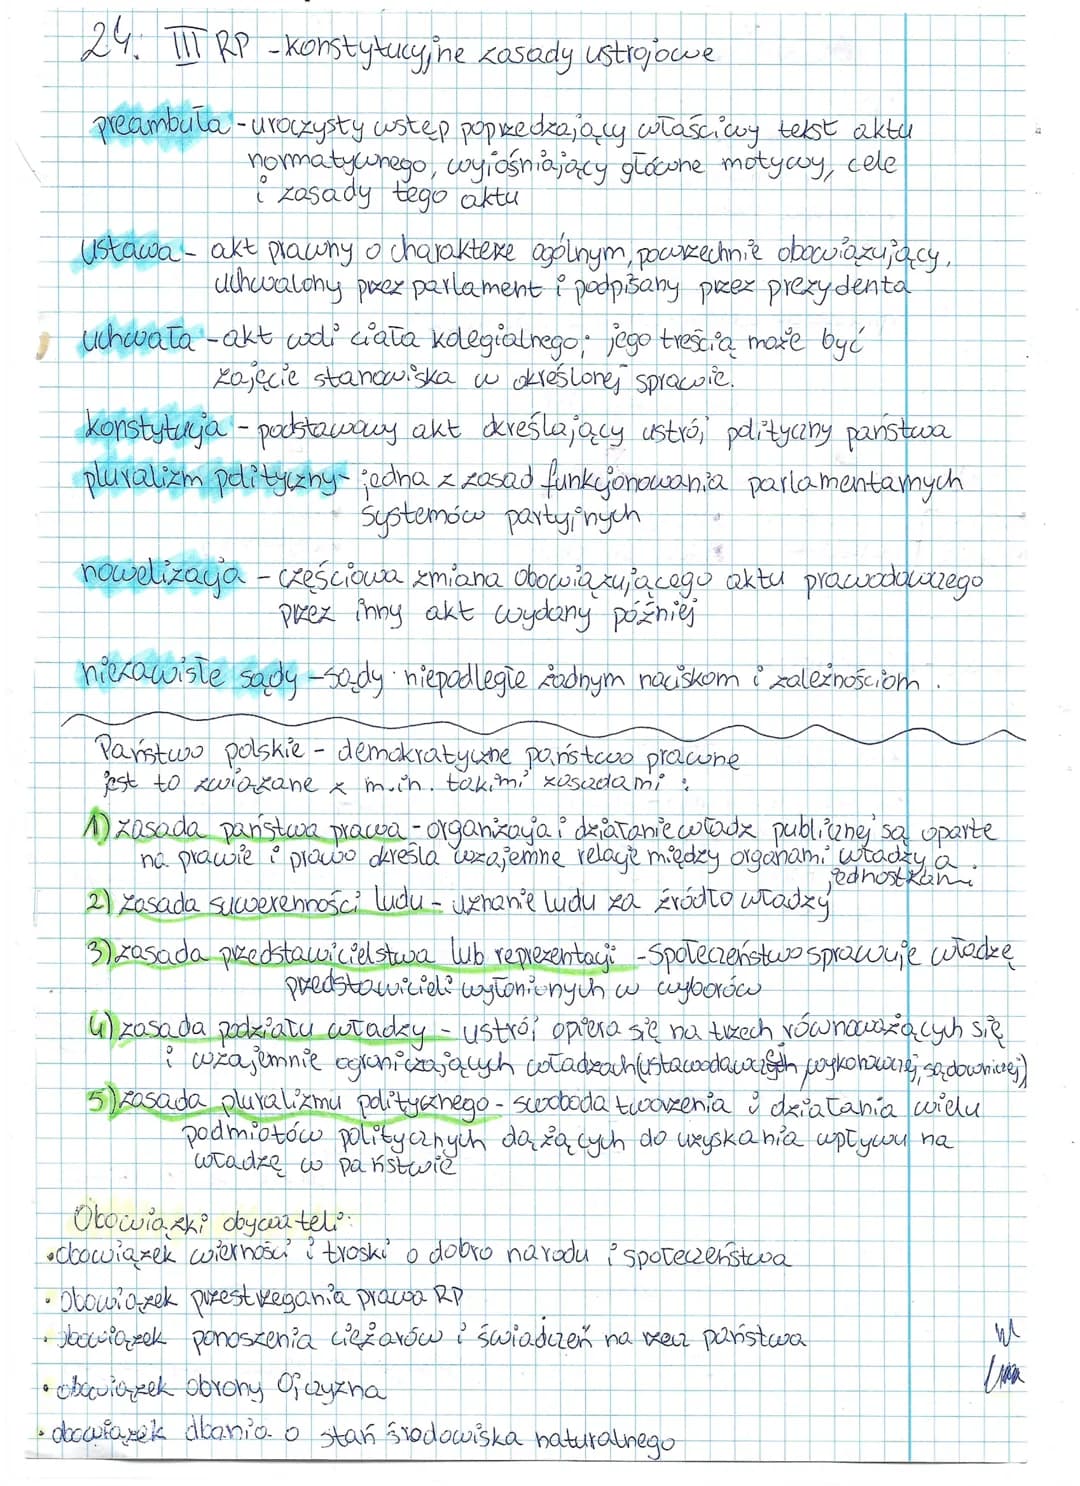 24. III RP - konstytucyjne zasady ustrojowe
preambuła - uroczysty wstęp poprzedzający właściwy tekst aktu
normatywnego, wyjaśniający główne motywy, cele
i zasady tego aktu
ustawa - akt prawny o charakterze ogólnym, powszechnie obowiązujący,
uchwalony przez parlament i podpisany przez prezydenta
uchwała - akt woli ciała kolegialnego; jego treścią może być
zajęcie stanowiska w określonej sprawie.
konstytucja - podstawowy akt określający ustrój polityczny państwa
pluralizm polityczny - jedna z zasad funkcjonowania parlamentarnych
systemów partyjnych
nowelizacja - częściowa zmiana obowiązującego aktu prawodawczego
przez inny akt wydany później
niezawisłe sądy - sądy niepodległe żadnym naciskom i zależnościom.
Państwo polskie - demokratyczne państwo prawne
jest to związane z m.in. takimi zasadami :
1) zasada państwa prawa - organizacja i działanie władz publicznej są oparte
na prawie i prawo określa wzajemne relacje między organami władzy a
jednostkami
2) zasada suwerenności ludu - uznanie ludu za źródło władzy
3) zasada przedstawicielstwa lub reprezentacji - społeczeństwo sprawuje władzę
przedstawicieli wyłonionych w wyborów
4) zasada podziału władzy - ustrój opiera się na trzech równoważących się
i wzajemnie ograniczających władzach (ustawodawczych wykonawczej, sądowniczej)
5) zasada pluralizmu politycznego - swoboda tworzenia i działania wielu
podmiotów politycznych dążących do uzyskania wpływu na
władzę w państwie
Obowiązki obywateli:
• obowiązek wierności i troski o dobro narodu i społeczeństwa
• obowiązek przestrzegania prawa RP
• obowiązek ponoszenia ciężarów i świadczeń na rzecz państwa
• obowiązek obrony Ojczyzna
• obowiązek dbania o stań środowiska naturalnego